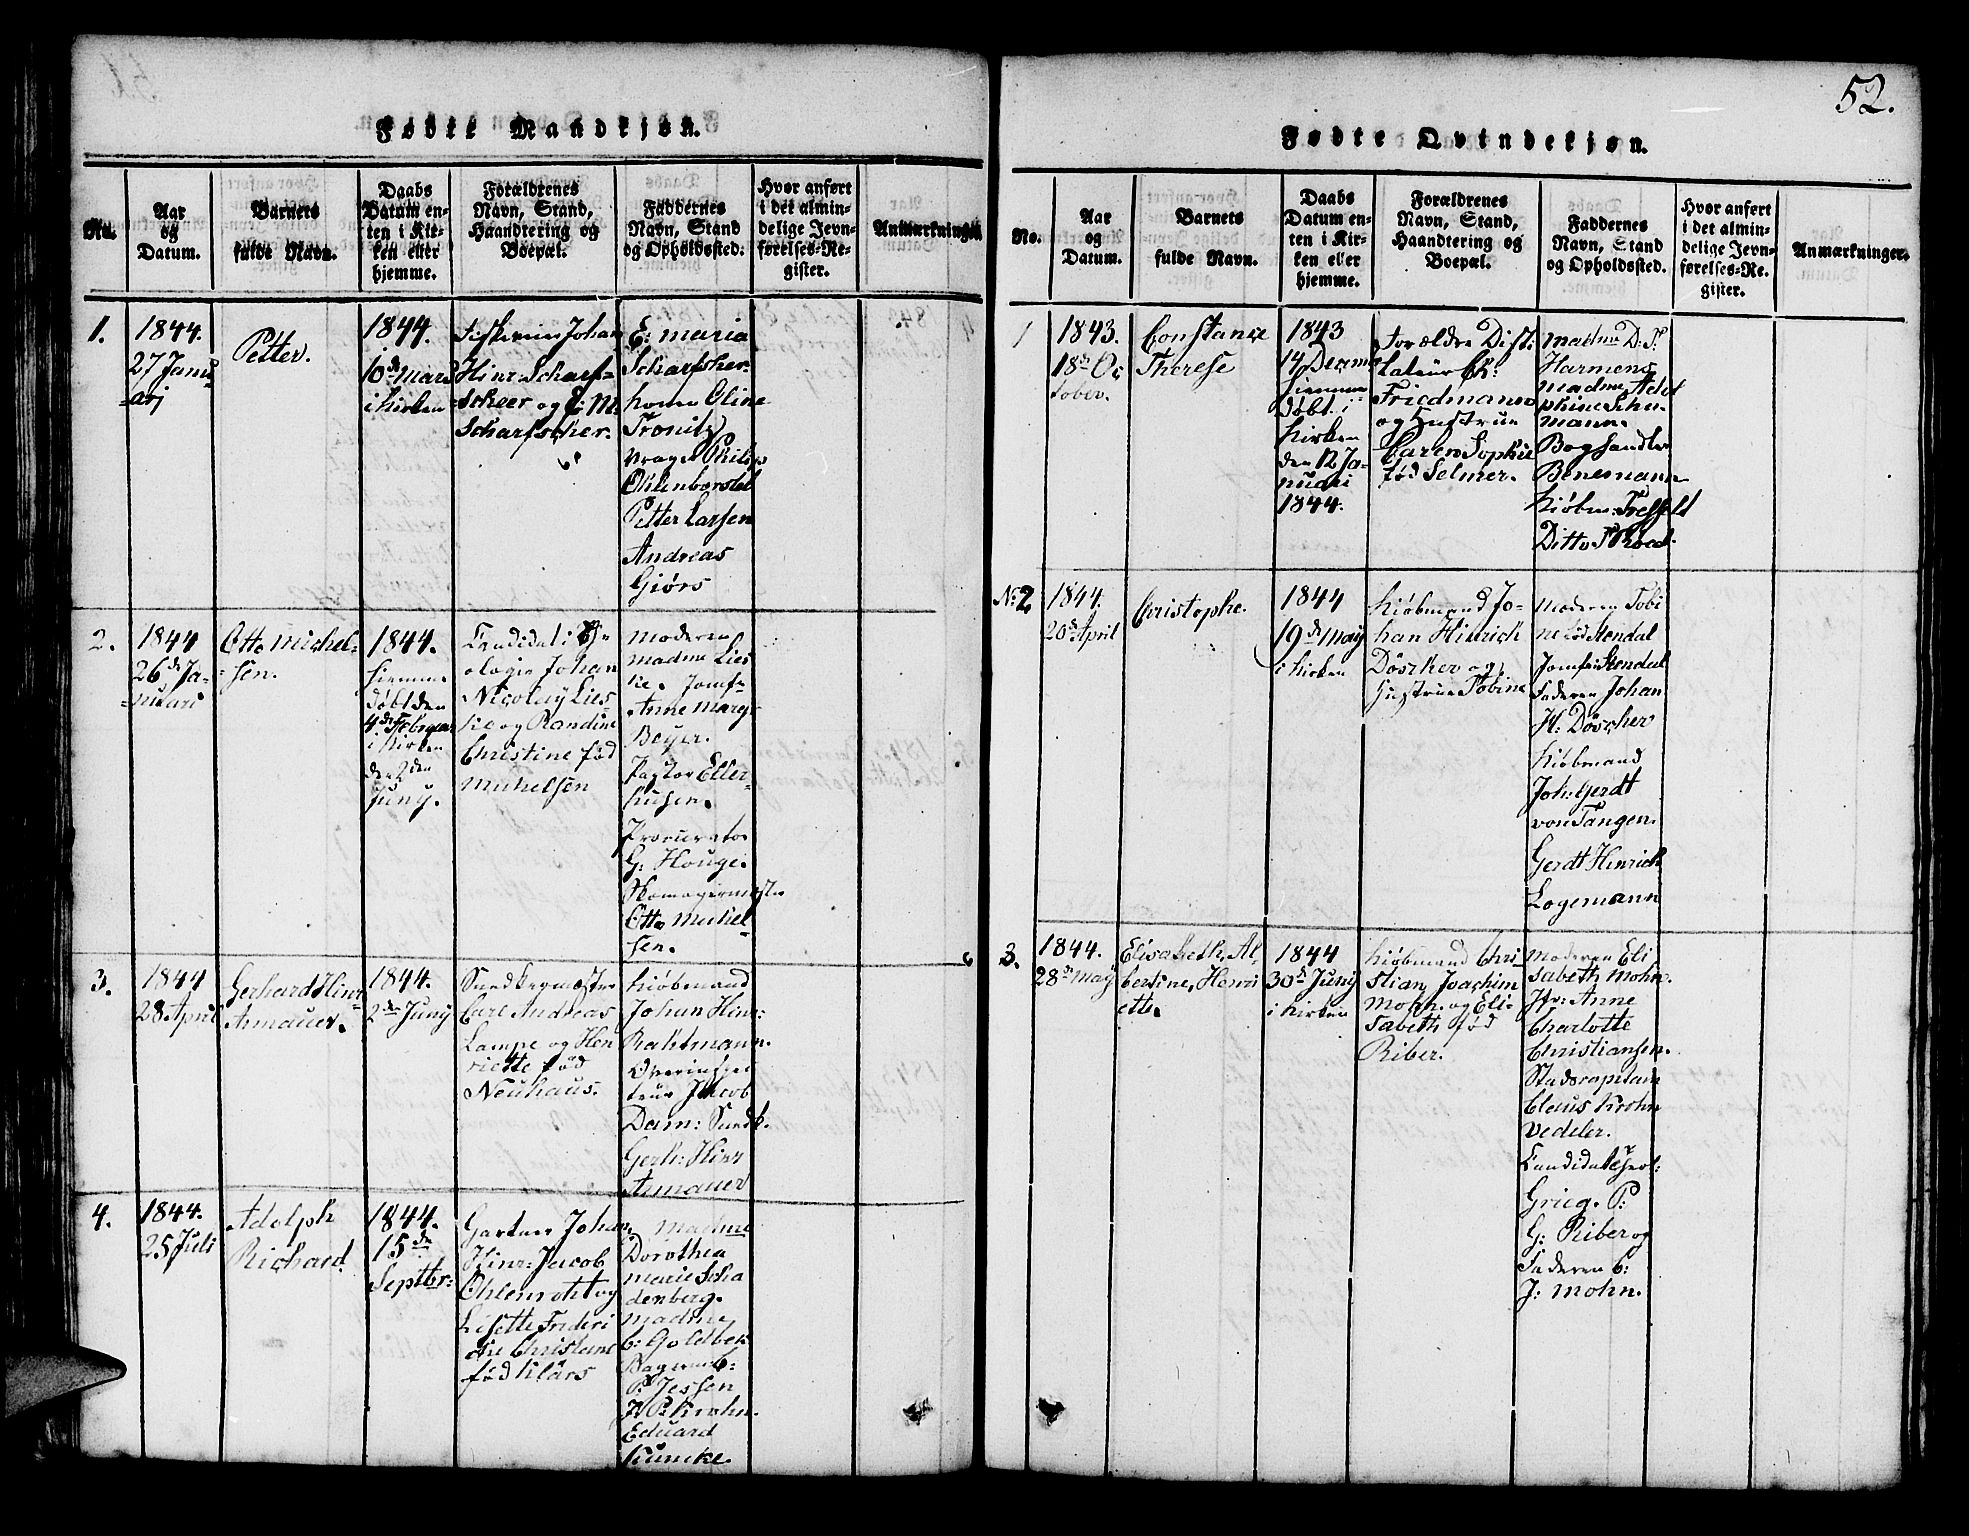 52.
Fødte Mandkjøn.
No.
Aar
og
Datum.
Barnets
fulde Navn.
Daabs
Datum en-
ten i Kir-
ken eller
hjemme.
Forældrenes
Navn, Stand,
Haandtering og
Boepæl.
Faddernes
Navn, Stand
og Opholdssted.
Hvor anført
i det almin-
delige Jevn-
førelses-Re-
gister.
Anmærkninger.
1.
1844.
27 Janu
arj
Petter.
1844.
10de Mars
i Kirken
Johan
Hinr: Scharf-
scheer og E: M:
Scharfscher.
E: Maria
Scharfscher.
Oline
Tronitz
Philip
Ohlenborstel
Petter Larsen
Andreas
Giørs
2.
1844
26de Ja-
nuari
Otto Michel-
sen.
1844.
hiemme
døbt den
4de Februar
i Kirken
den 2den
Juny.
Candidat i The
ologie Johan
Nicolay Lies
ke og Randine
Christine fød
Michelsen
Moderen
Madme Lies
ke. Jomfr
Anne Margr
Beyer.
Pastor Eller-
husen.
Procurator
G: Houge.
Skomagermester
Otto Michel
sen.
3.
1844
28 April
Gerhard Hinr
Armauer.
1844.
2de Juny
Carl Andreas
Lampe og Hen
riette fød
Neuhaus.
Kiøbmand
Johan Hinr:
Rahtmann.
Jacob
Dam:
Gerh: Hinr
Armauer
4.
1844.
25 Juli
Adolph
Richard.
1844.
15de
Septbr:
Gartner Johan
Hinr: Jacob
Ohlenroht og
Lisette Frideri
che Christiane
fød Klärs
Madme
Dorothea
Marie Scha
denberg.
Madme
C: Goldbek
P: Jessen
P: Krohn.
Eduard
Küncke.
Fødte Qvindekjøn.
No.
Aar
og
Datum.
Barnets
fulde Navn.
Daabs
Datum en-
ten i Kir-
ken eller
hjemme.
Forældrenes
Navn, Stand,
Haandtering og
Boepæl.
Faddernes
Navn, Stand
og Opholdssted.
Hvor anført
i det almin-
delige Jevn-
førelses-Re-
gister.
Anmærkninger.
1
1843.
18de Oc
tober.
Constance
Therese
1843
14 Decem
hiemme
døbt i
Kirken
den 12 Ja-
nuari
1844.
Forældre Disti
lateur Ch:
Friedmann
og Hustrue
Caren Sophie
fød Selmer.
Madme D: S:
Harmens
Madme Adel
phine Schu-
mann.
Boghandler
Benesmann
Ditto
No 2
1844.
20de April
Christophe.
1844
19de May
i Kirken
Kiøbmand Jo-
han Hinrich
Döscher og
Hustrue Tobine
Moderen Tobi
ne fød Stendal
Jomfr: Stendal
Faderen Johan
H: Döscher
Kiøbmand
Joh: Gerdt
von Tangen.
Gerdt Hinrich
Logemann
3.
1844.
28de May
Elisabeth, Al-
bertine, Henri
ette.
1844
30de Juny
i Kirken
Kiøbmand Chri
stian Joachim
Mohn. og Eli-
sabeth fød
Riber.
Moderen Eli
sabeth Mohn.
Jfr: Anne
Charlotte
Christiansen.
Stadscapitain
Claus Krohn
Vedeler.
Grieg. P:
G: Riber og
Faderen C:
J: Mohn.